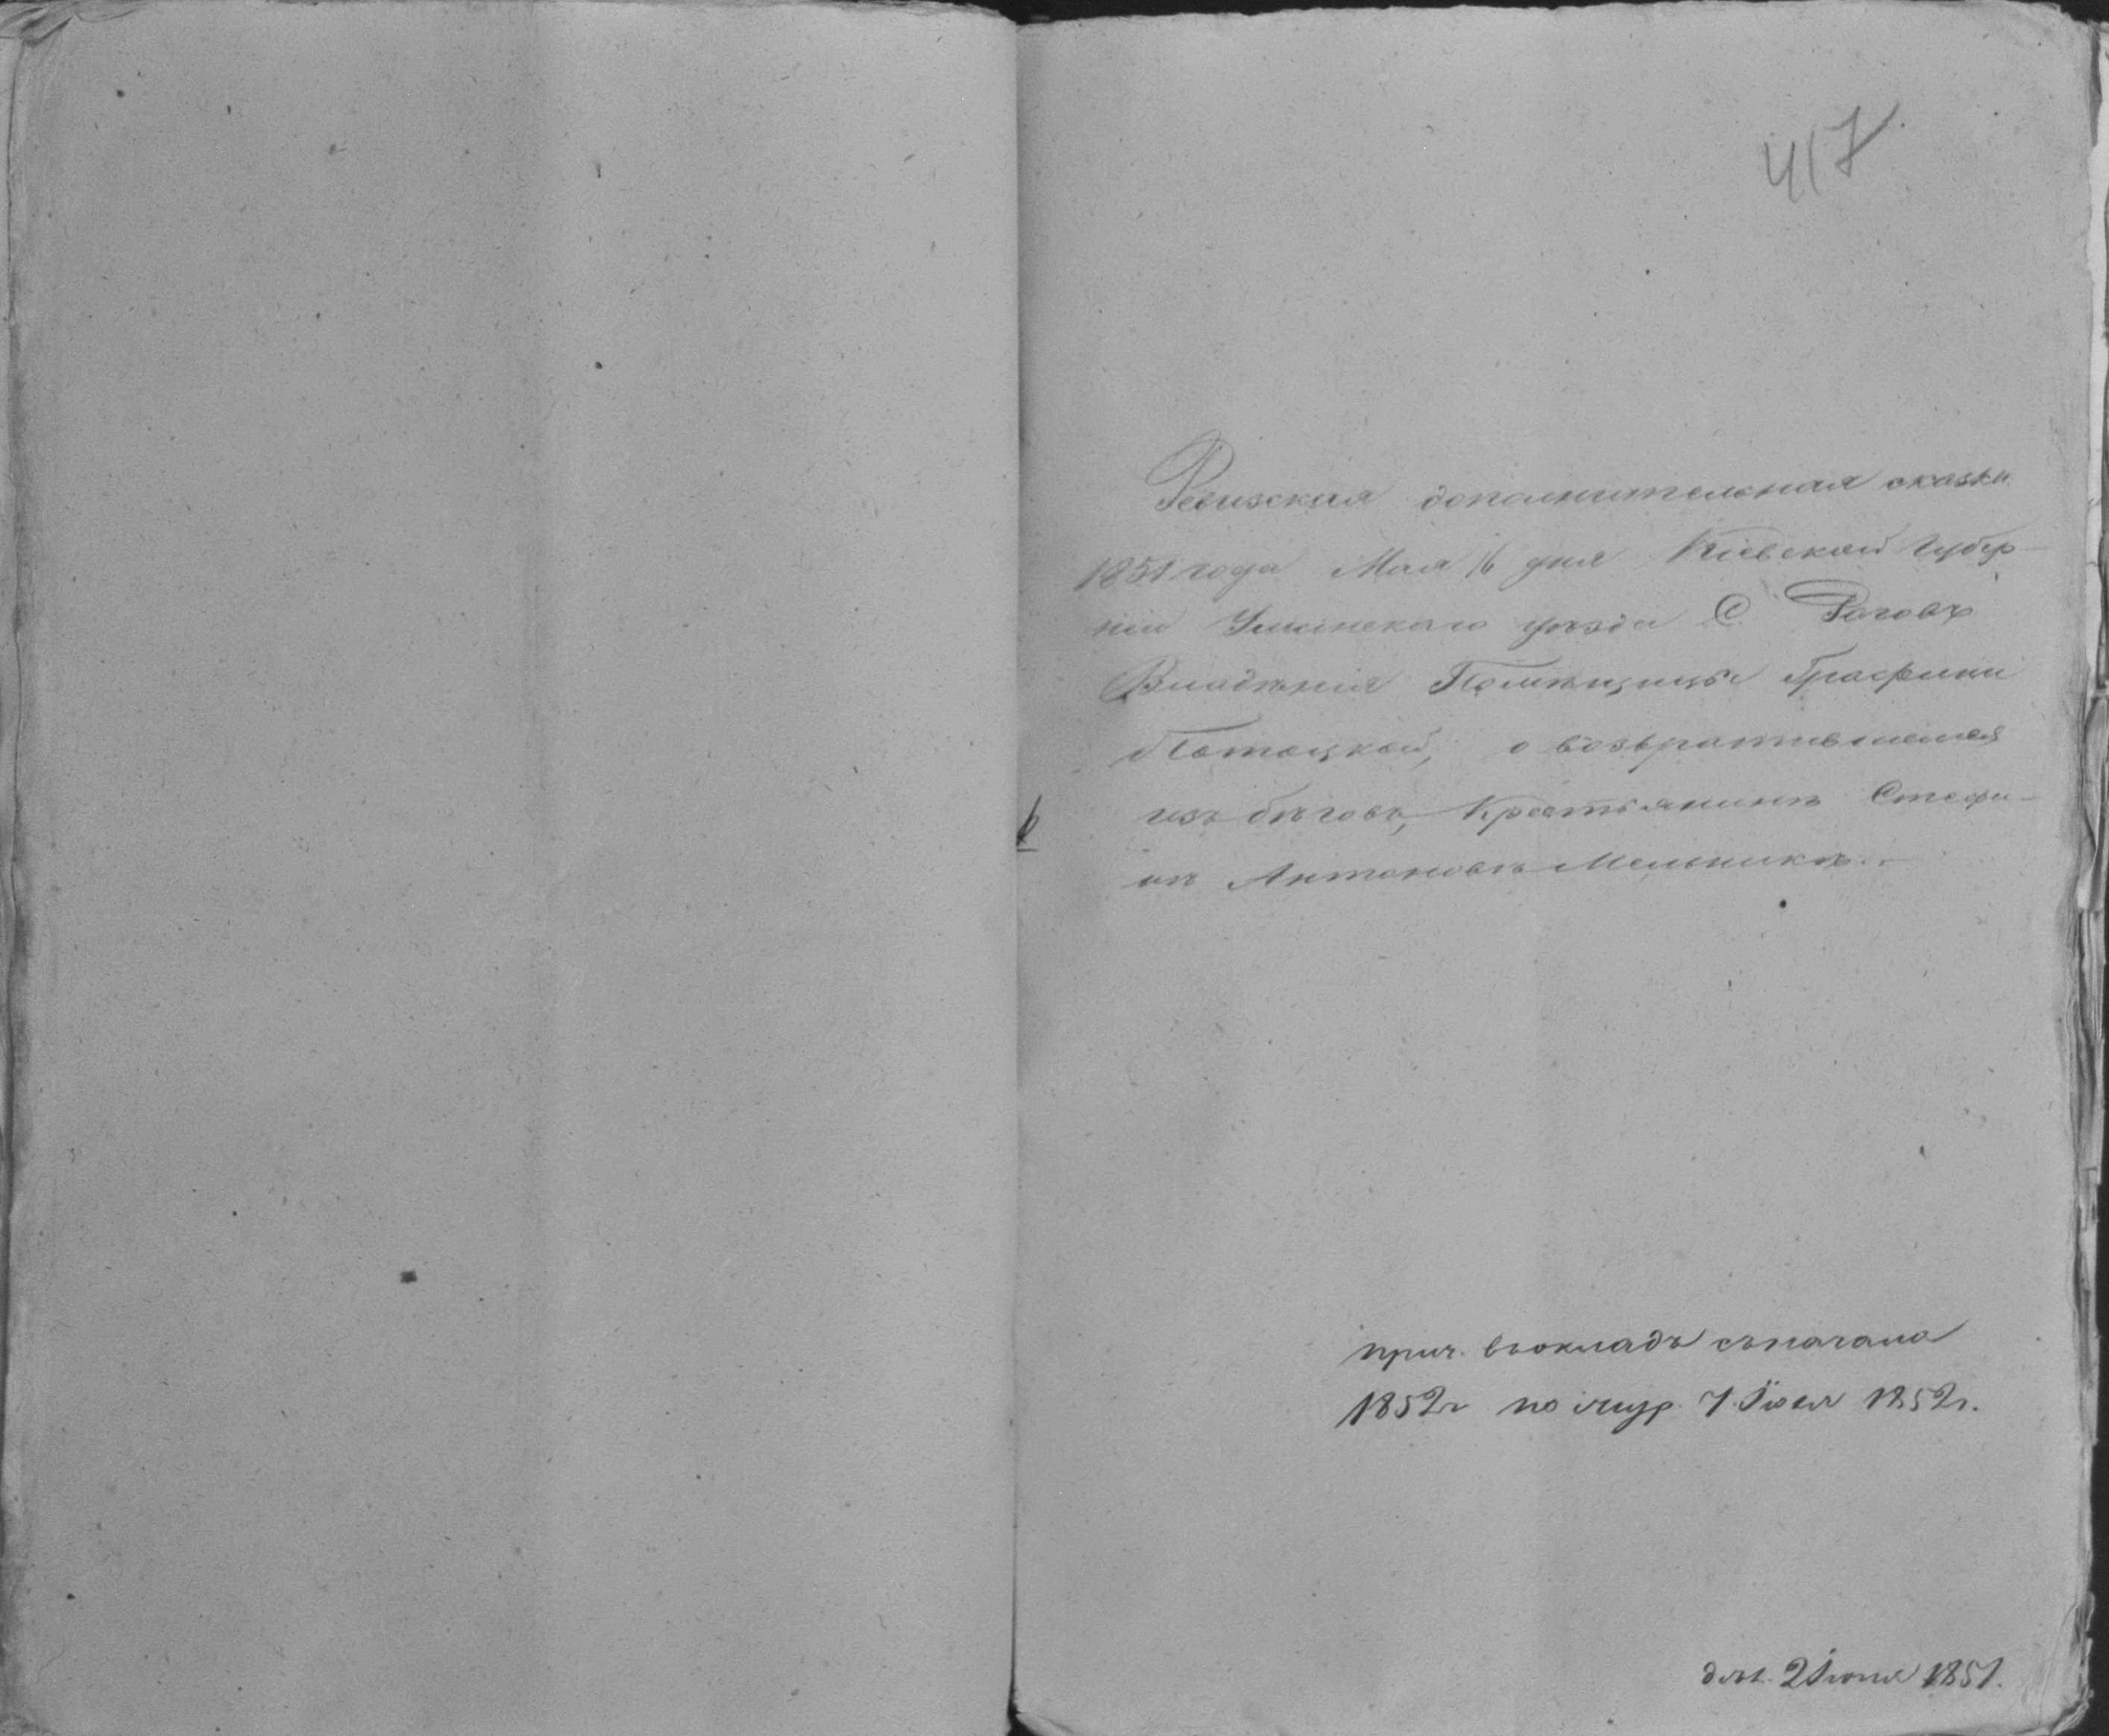 417
Ревизская дополнительная сказка
1851 года Мая 16 дня Кіевской Губер-
ніи Уманскаго уѣзда С. Роговъ
Владѣнія Помѣщицы Графини
Потоцкой, о возвратившемся
изъ бѣговъ, Крестьянинѣ Стефа-
нѣ Антоновѣ Мельникѣ.
прич. въокладъ съначала
1852 г по жур. 7 Іюля 1852 г.
2 Іюня 1851.